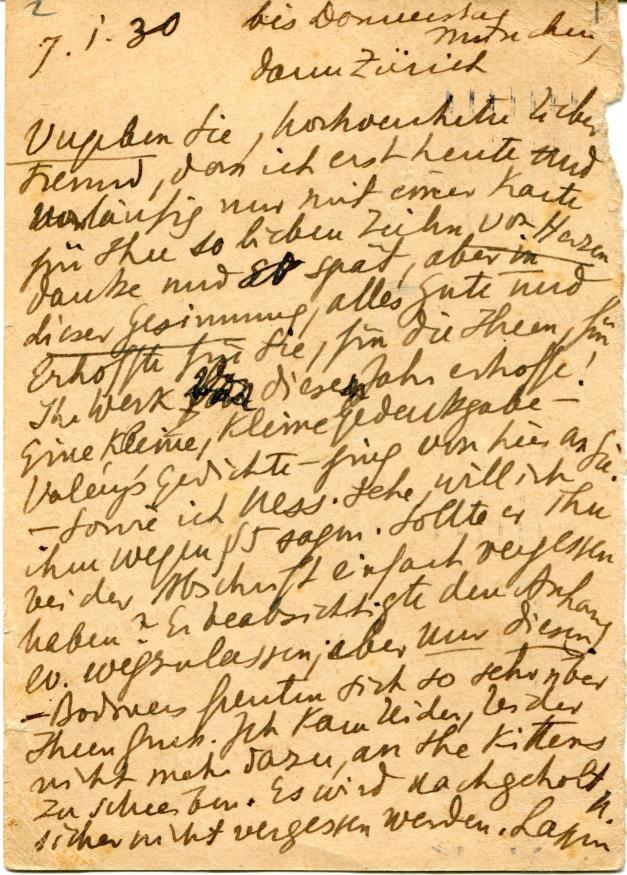 7. I. 30 bis Donnerstag
München,
dann Zürich
Vergeben Sie, hochverehrter lieber
Freund, dass ich erst heute und
vorläufig nur mit einer Karte
für Ihre so lieben Zeilen von Herzen
danke und so spät, aber in
dieser Gesinnung, alles Gute und
Erhoffte für Sie, für die Ihren, für
Ihr Werk dieses Jahr erhoffe!
Eine kleine, kleine Gedenkgabe –
Valéry's Gedichte – ging von hier an Sie.
– Sowie ich Hess. sehe, will ich
ihm wegen § 5 sagen. Sollte er ihn
bei der Abschrift einfach vergessen
haben? Er beabsichtigte den Anhang
ev. wegzulassen, aber nur diesen,
– Bodmers freuten sich so sehr über
Ihren Gruss. Ich kam leider, leider
nicht mehr dazu, an the Kittens
zu schreiben. Es wird nachgeholt u.
sicher nicht vergessen werden. Lassen